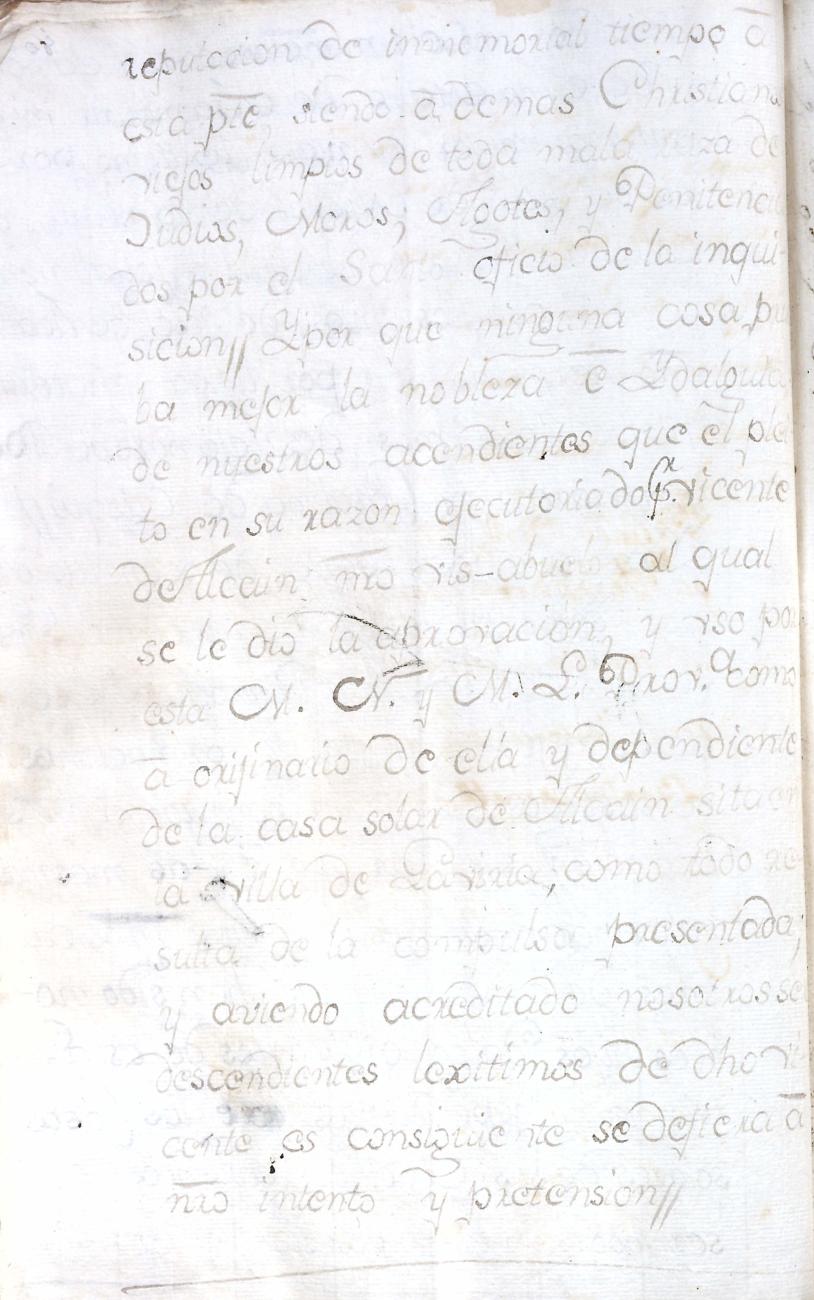 reputacion de inmemorial tiempo â
esta pte, siendo â demas Christiano
viejos limpios de toda mala raza de
Judios, Moros, Agotes, y Penitencia
dos por el Santo oficio de la inqui-
sicion// Y por que ninguna cosa prue
ba mejor la nobleza ê Ydalguia
de nuestros acendientes que el plei
to en su razon ejecutoriado pr. vicente
de Alcain nro vis-abuelo al qual
se le dio la aprovación, y vso por
esta M. N. y M. L. Prov.a como
â orijinario de ella y dependiente
de la casa solar de Alcain sita en
la villa de como todo re
sulta de la compulsa presentada;
y aviendo acreditado nosotros ser
descendientes lexitimos de dho vi
cente es consiguiente se defiera â
nro intento y pretension//